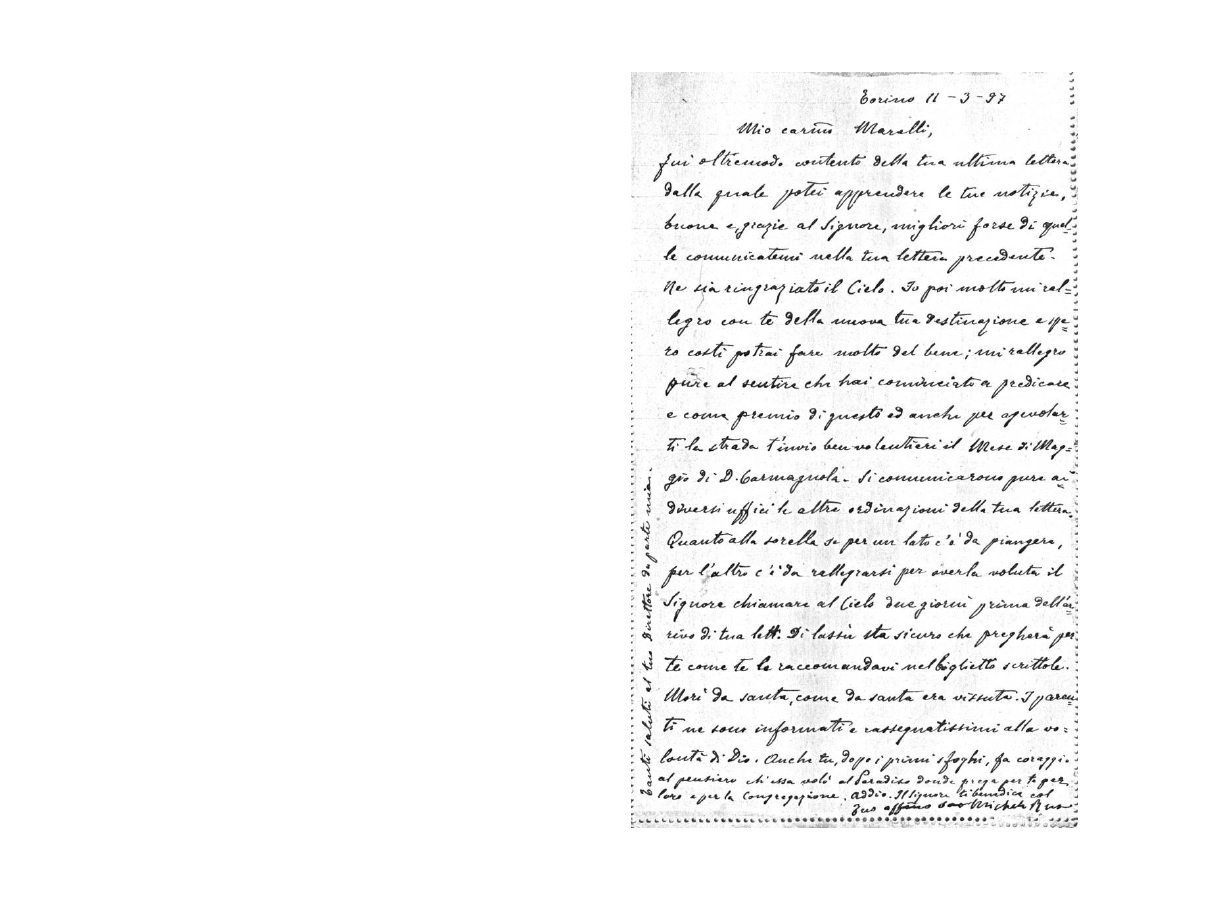 Torino 11-3-97
Mio carm̃o Maralli,
fui oltremodo contento della tua ultima lettera
dalla quale potei apprendere le tue notizie,
buone e, grazie al Signore, migliori forse di quel-
le comunicatemi nella tua lettera precedente.
Ne sia ringraziato il Cielo. Io poi molto mi ral=
legro con te della nuova tua destinazione e spe=
ro costì potrai fare molto del bene; mi rallegro
pure al sentire che hai cominciato a predicare
e come premio di questo ed anche per agevolar=
ti la strada t'invio ben volentieri il Mese di Mag=
gio di D. Carmagnola. Si comunicarono pure ai
diversi uffici le altre ordinazioni della tua lettera.
Quanto alla sorella se per un lato c'è da piangere,
per l'altro c'è da rallegrarsi per averla voluta il
Signore chiamare al Cielo due giorni prima dell'ar=
rivo di tua lett. Di lassù sta sicuro che pregherà per
te come te le raccomandavi nel biglietto scrittole.
Morì da santa, come da santa era vissuta. I paren=
ti ne sono informati e rassegnatissimi alla vo=
lontà di Dio. Anche tu, dopo i primi sfoghi, fa coraggio
al pensiero ch'essa volò al Paradiso donde prega per te per
loro e per la Congregazione. Addio. Il Signore ti benedica col
Tuo affmo Sac Michele Rua
Tanti saluti al tuo Direttore da parte mia.